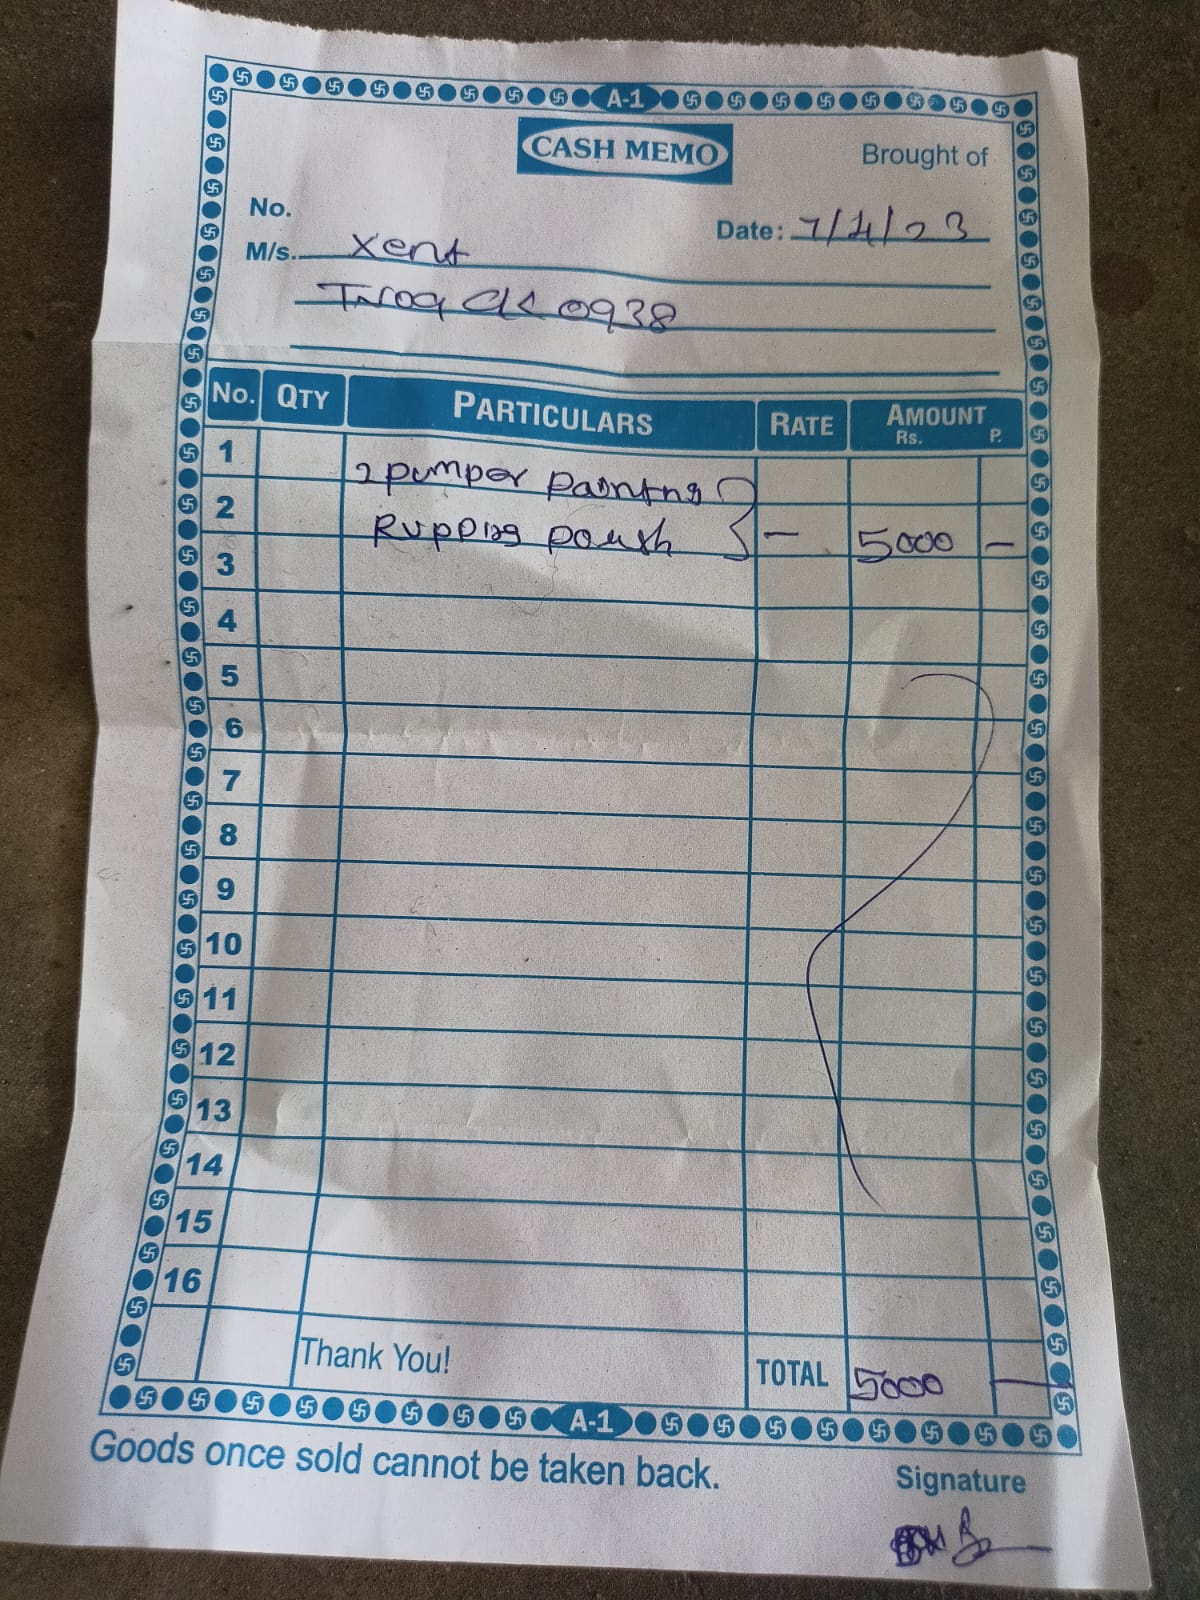 A-1
CASH MEMO
Brought of
No.
Date: 7/4/23
M/s. Xent
TN09 CK 0938
No. QTY PARTICULARS RATE AMOUNT
Rs. P.
1 2 pumper painting
2 Rupping poush — 5000 —
3
4
5
6
7
8
9
10
11
12
13
14
15
16
Thank You! TOTAL 5000 —
A-1
Goods once sold cannot be taken back.
Signature